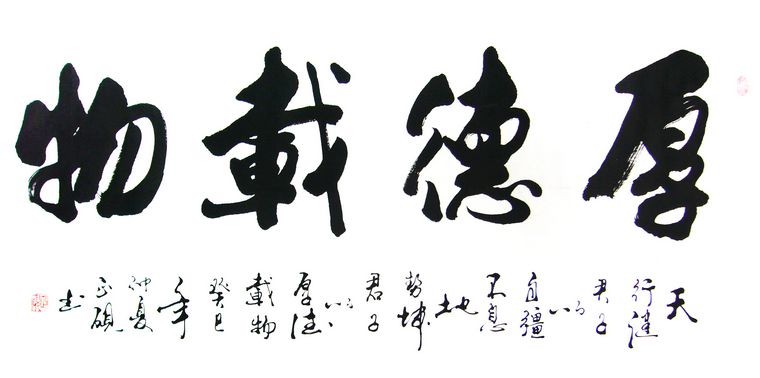 厚德載物
天行健君子以自彊不息地勢坤君子以厚德載物癸巳年仲夏正硯书